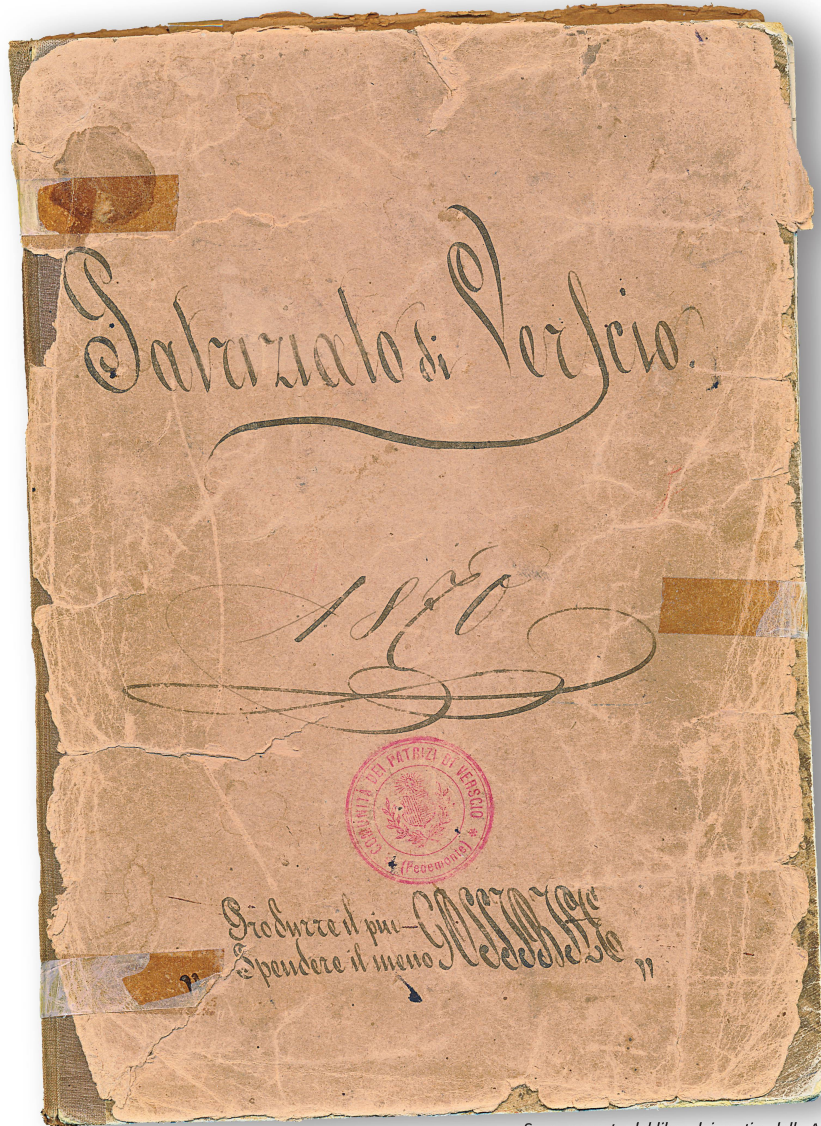 Patriziato di Verscio.
1870
COMUNITÀ DEI PATRIZI DI VERSCIO
(Pedemonte)
Produrre il piu - POSSIBILE
„ Spendere il meno „